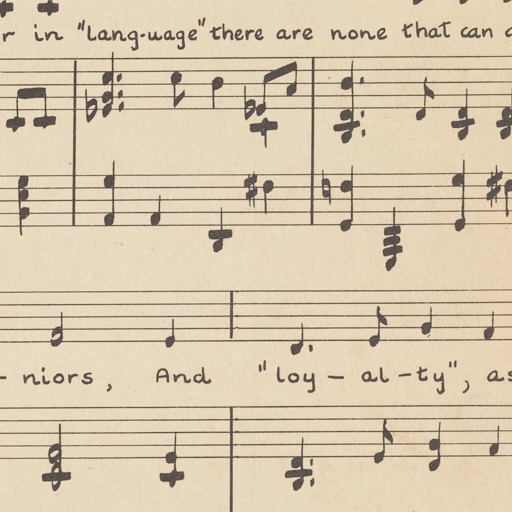 r in "lang-uage" there are none that can
- niors, And "loy - al - ty", as